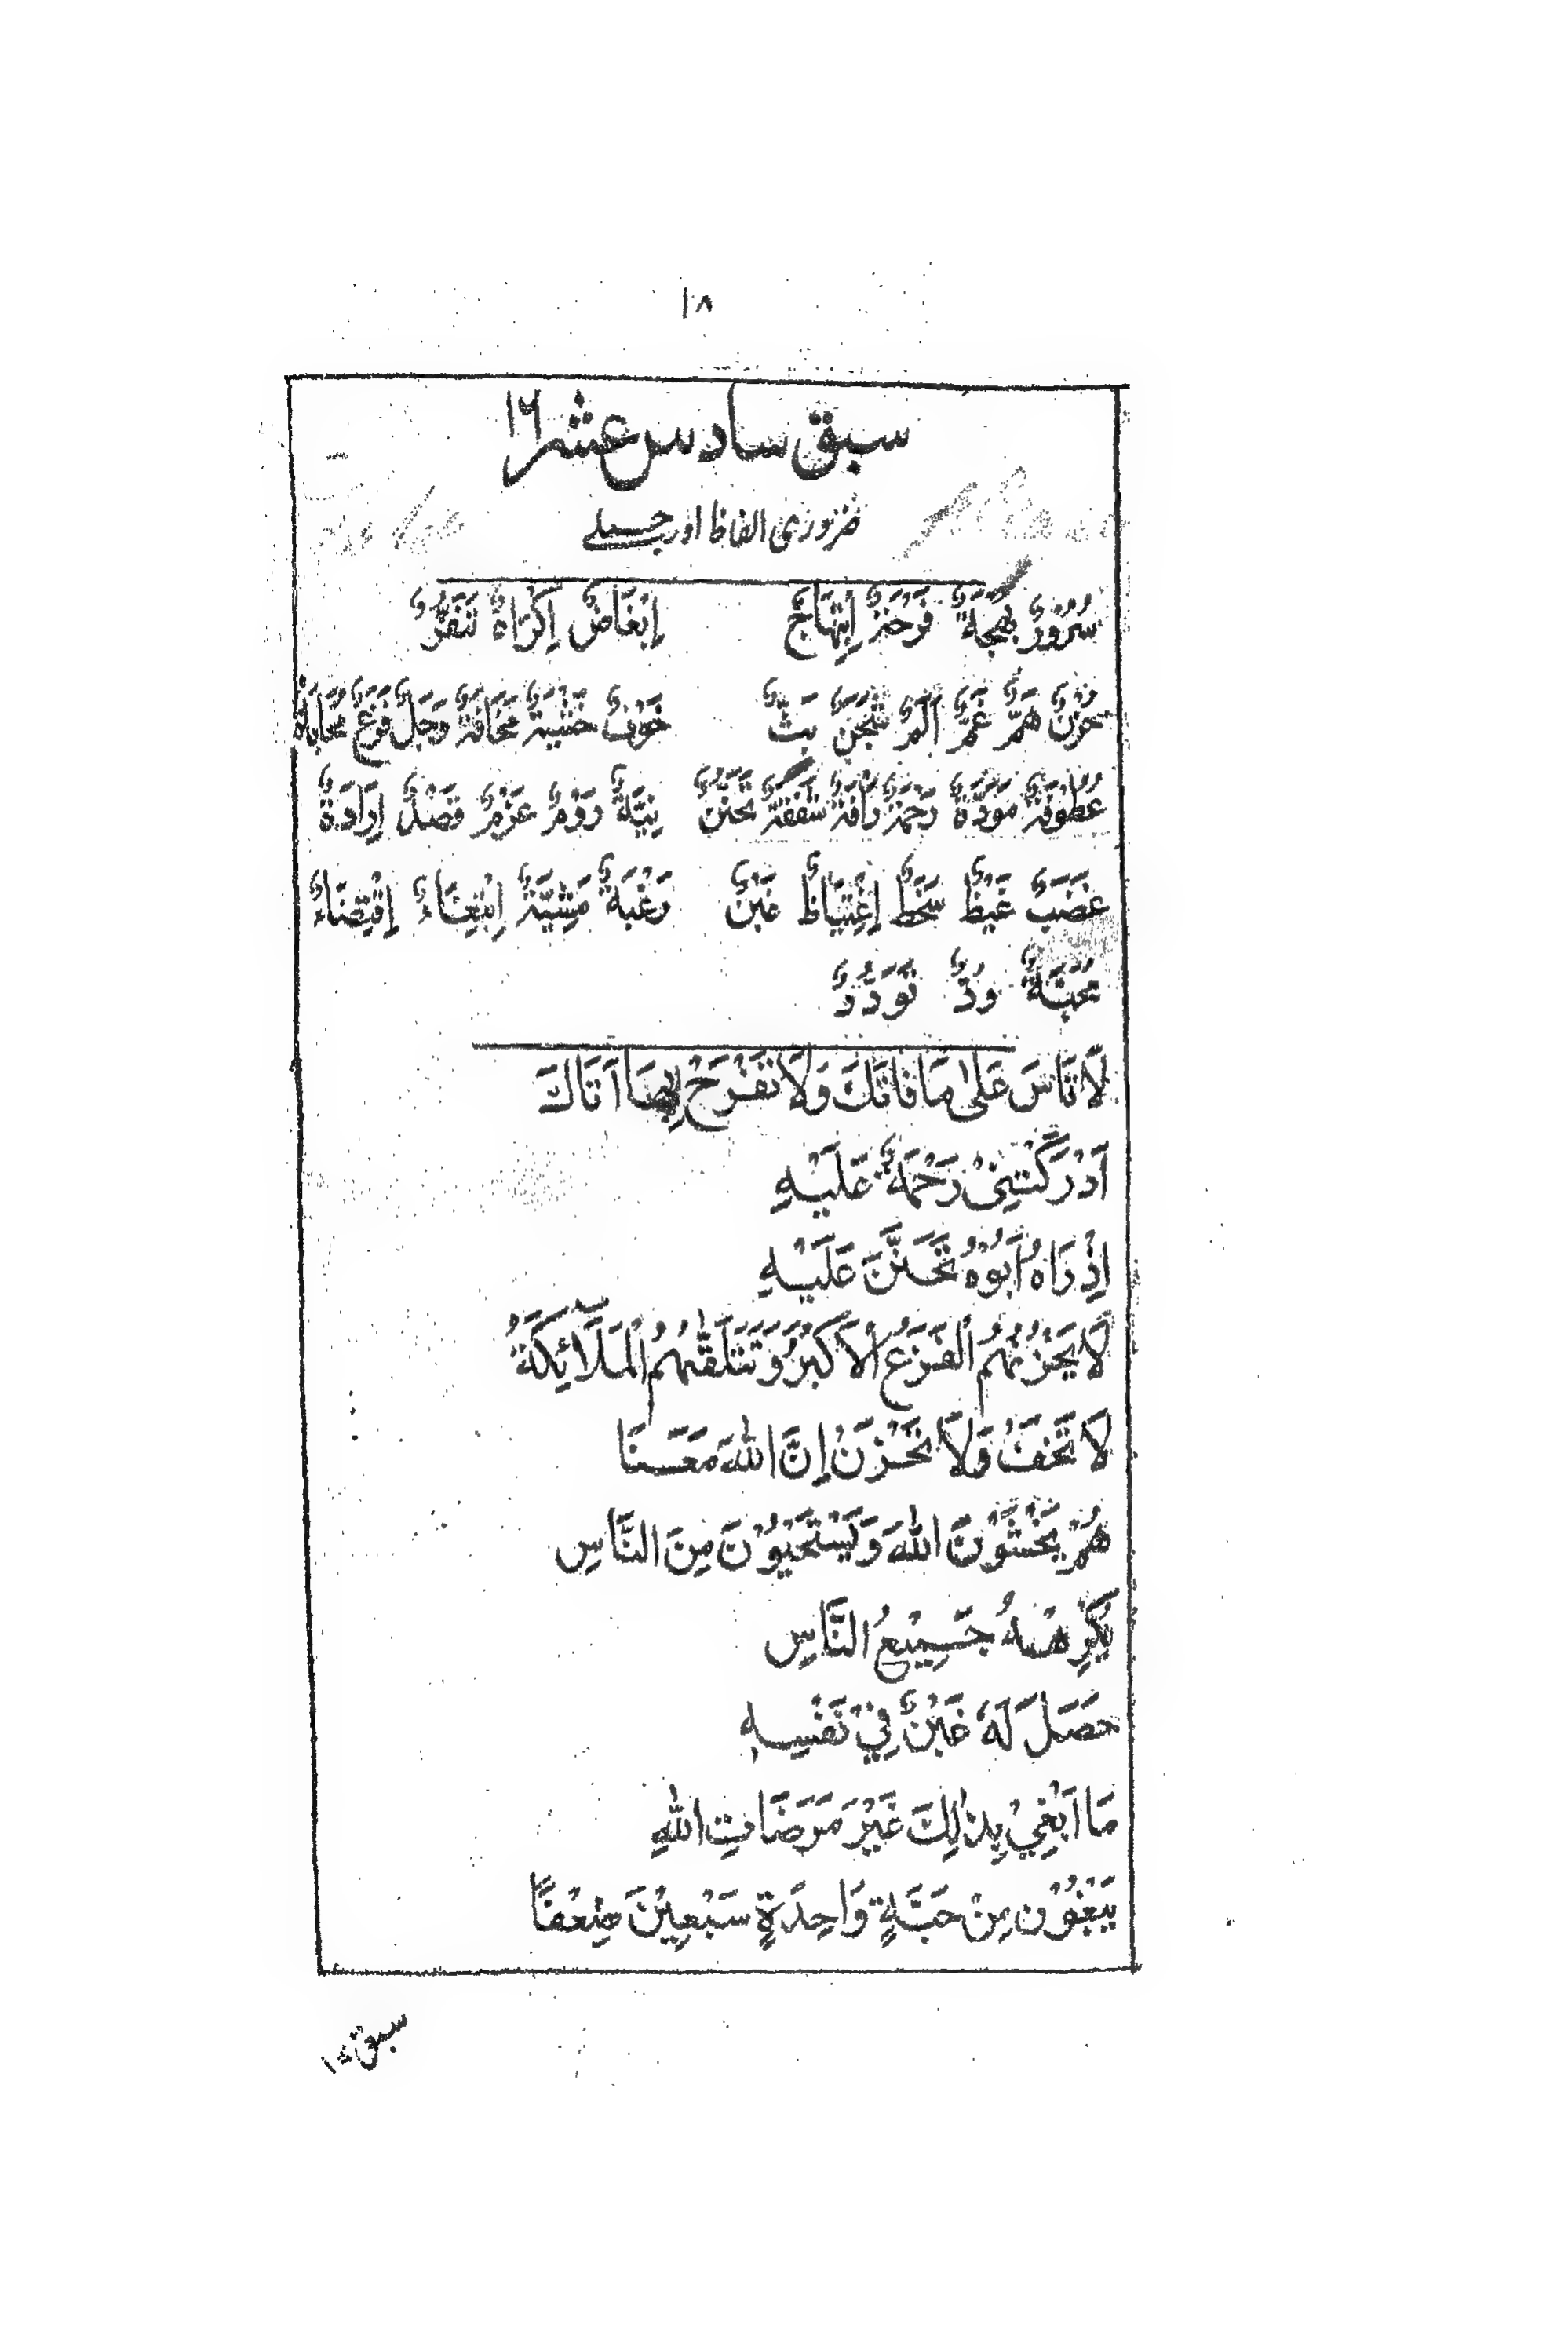 ۱۸
سبق سادس عشر ۱۶
ضروری الفاظ اور جملے
سُرُوْرٌ بَهْجَةٌ فَرْحَةٌ اِبْتِهَاجٌ اِبْغَاضٌ اِكْرَاهٌ تَنَفُّرٌ
حُزْنٌ هَمٌّ غَمٌّ اَلَمٌ شَجَنٌ بَثٌّ خَوْفٌ خَشْيَةٌ مَخَافَةٌ وَجَلٌ فَزَعٌ
عُطُوْفَةٌ مَوَدَّةٌ رَحْمَةٌ رَأْفَةٌ شَفَقَةٌ تَحَنُّنٌ نِيَّةٌ رَوْمٌ عَزْمٌ قَصْدٌ اِرَادَةٌ
غَضَبٌ غَيْظٌ سَخَطٌ اِغْتِيَاظٌ غَبْنٌ رَغْبَةٌ مَشِيَّةٌ اِبْتِغَاءٌ اِقْتِضَاءٌ
مُحَبَّةٌ وُدٌّ تَوَدُّدٌ
لَا تَاْسَ عَلٰى مَا فَاتَكَ وَلَا تَفْرَحْ بِمَا اٰتَاكَ
اَدْرَكَتْنِيْ رَحْمَةٌ عَلَيْهِ
اِذْ رَاٰهُ اَبُوْهُ تَحَنَّنَ عَلَيْهِ
لَا يَحْزُنُهُمُ الْفَزَعُ الْاَكْبَرُ وَتَتَلَقّٰهُمُ الْمَلَآئِكَةُ
لَا تَخَفْ وَلَا تَحْزَنْ اِنَّ اللّٰهَ مَعَنَا
هُمْ يَخْشَوْنَ اللّٰهَ وَيَسْتَحْيُوْنَ مِنَ النَّاسِ
يُكْرِهُهُ جَمِيْعُ النَّاسِ
حَصَلَ لَهٗ غَبْنٌ فِيْ نَفْسِهٖ
مَا اَبْغِيْ بِذٰلِكَ غَيْرَ مَرَضَاتِ اللّٰهِ
يَبْغُوْنَ مِنْ حَبَّةٍ وَاحِدَةٍ سَبْعِيْنَ ضِعْفًا
سبق ۱۷